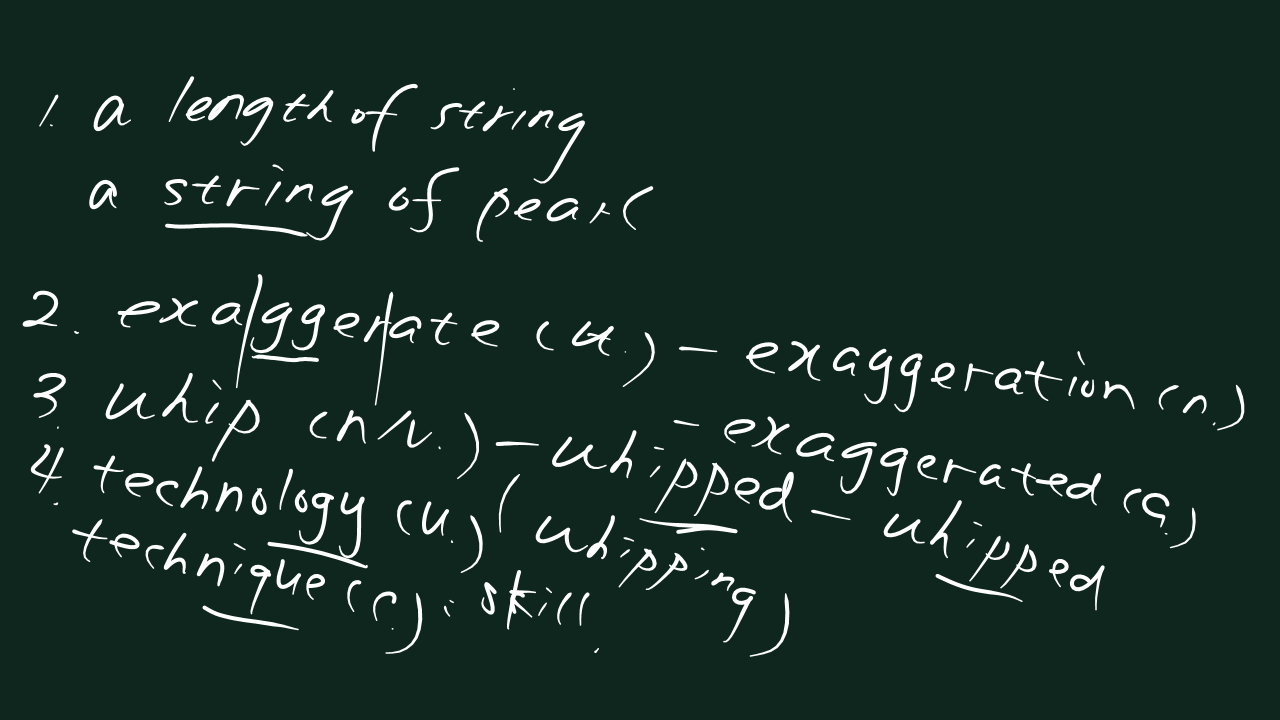 1. a length of string
a string of pearl
2. exaggerate (v.) - exaggeration (n.)
- exaggerated (a.)
3. whip (n/v.) - whipped - whipped
(whipping)
4. technology (u.)
technique (c.): skill.